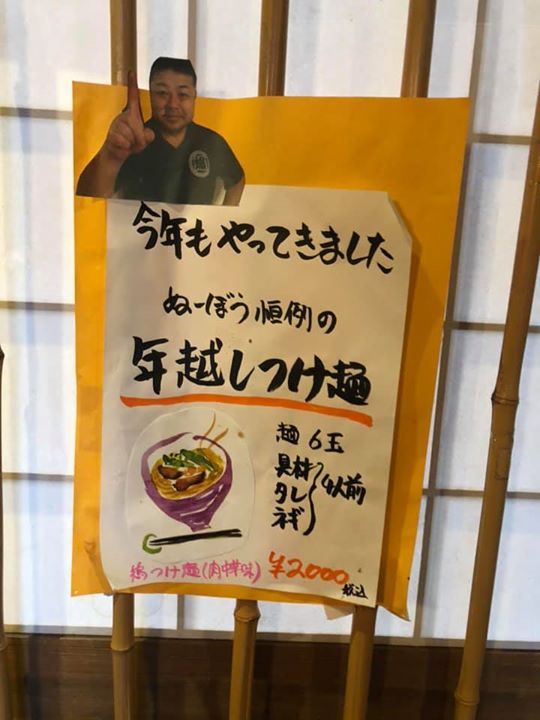 今年もやってきました
ぬーぼう恒例の
年越しつけ麺
麺 6玉
具材
タレ
ネギ
4人前
鶏つけ麺(肉中華味)
¥2000
税込